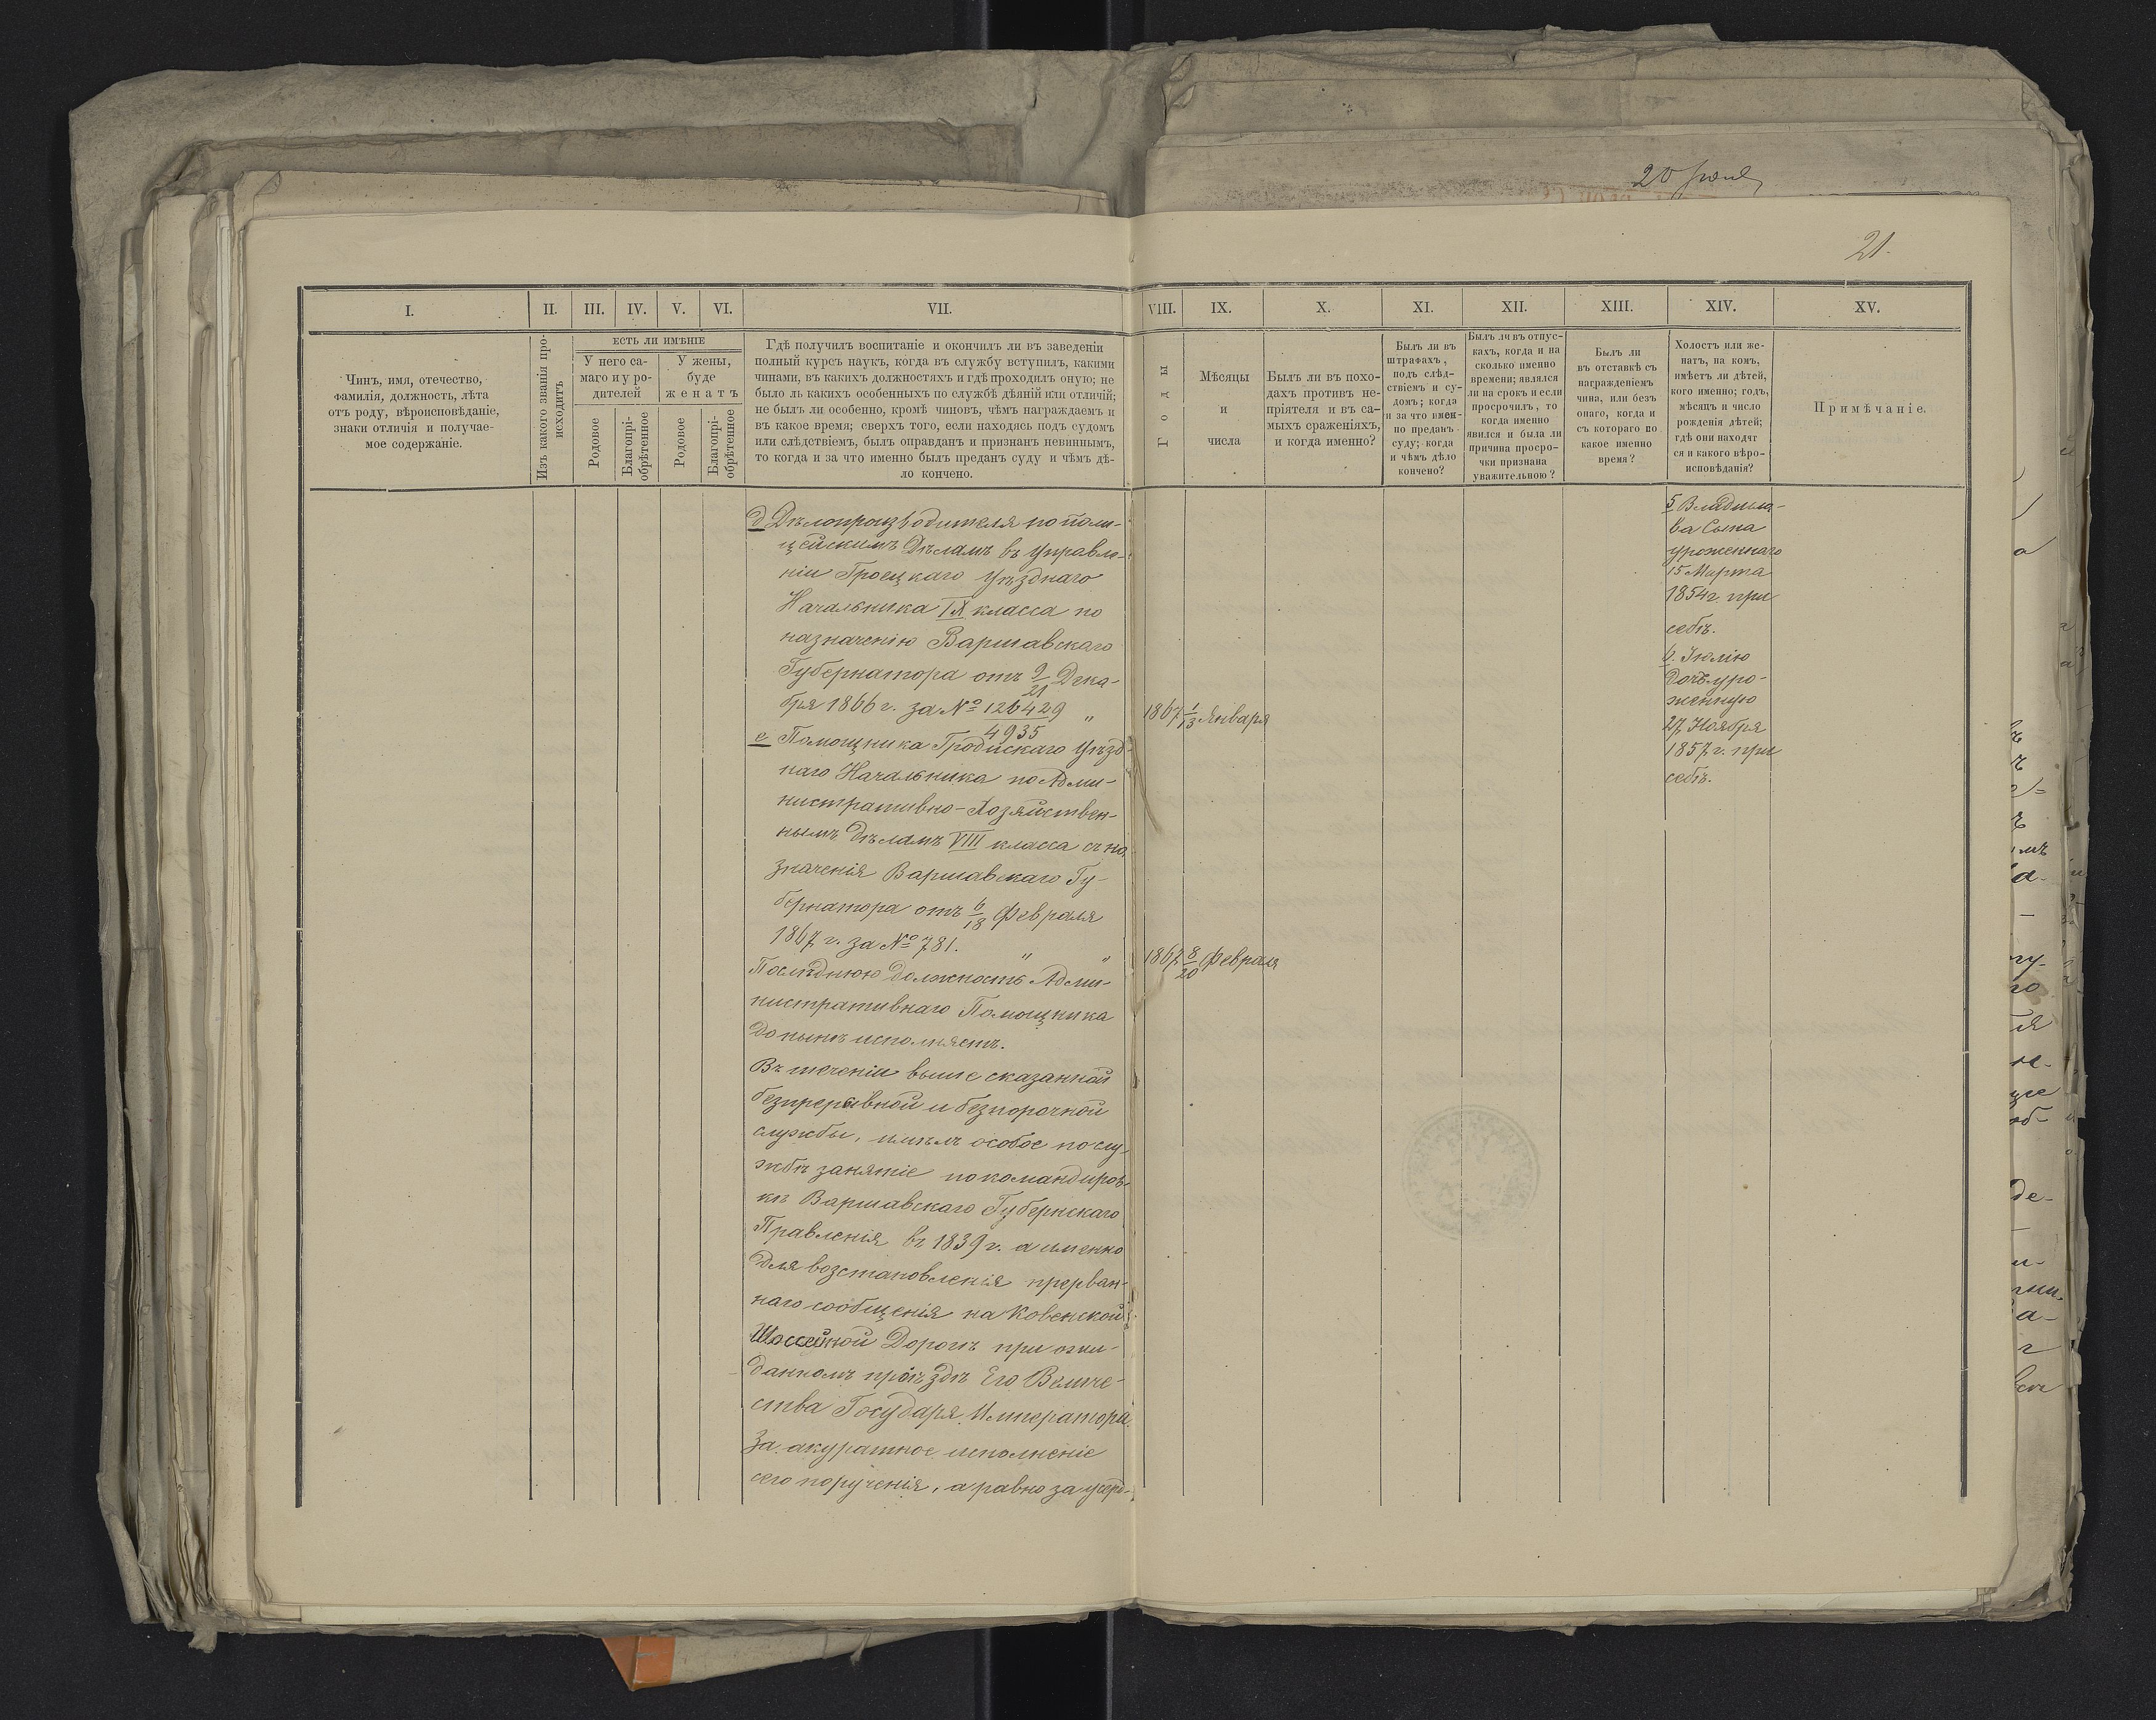 20 Іюня
21.
I.
II.
III.
IV.
V.
VI.
VII.
VIII.
IX.
X.
XI.
XII.
XIII.
XIV.
XV.
Чинъ, имя, отечество,
фамилія, должность, лѣта
отъ роду, вѣроисповѣданіе,
знаки отличія и получае-
мое содержаніе.
Изъ какого званія про-
исходитъ
ЕСТЬ ЛИ ИМѢНІЕ
У него са-
маго и у ро-
дителей
У жены,
буде
женатъ
Родовое
Благопрі-
обрѣтенное
Родовое
Благопрі-
обрѣтенное
Гдѣ получилъ воспитаніе и окончилъ ли въ заведеніи
полный курсъ наукъ, когда въ службу вступилъ, какими
чинами, въ какихъ должностяхъ и гдѣ проходилъ оную; не
было ль какихъ особенныхъ по службѣ дѣяній или отличій;
не былъ ли особенно, кромѣ чиновъ, чѣмъ награждаемъ и
въ какое время; сверхъ того, если находясь подъ судомъ
или слѣдствіемъ, былъ оправданъ и признанъ невиннымъ,
то когда и за что именно былъ преданъ суду и чѣмъ дѣ-
ло кончено.
Годы
Мѣсяцы
и
числа
Былъ ли въ похо-
дахъ противъ не-
пріятеля и въ са-
мыхъ сраженіяхъ,
и когда именно?
Былъ ли въ
штрафахъ,
подъ слѣд-
ствіемъ и су-
домъ; когда
и за что имен-
но преданъ
суду; когда
и чѣмъ дѣло
кончено?
Былъ ли въ отпус-
кахъ, когда и на
сколько именно
времени; являлся
ли на срокъ и если
просрочилъ, то
когда именно
явился и была ли
причина просро-
чки признана
уважительною?
Былъ ли
въ отставкѣ съ
награжденіемъ
чина, или безъ
онаго, когда и
съ котораго по
какое именно
время?
Холостъ или же-
натъ, на комъ,
имѣетъ ли дѣтей,
кого именно; годъ,
мѣсяцъ и число
рожденія дѣтей;
гдѣ они находят
ся и какого вѣро-
исповѣданія?
Примѣчаніе.
д Дѣлопроизводителя по поли-
цейскимъ Дѣламъ въ Управле-
ніи Гроецкаго Уѣзднаго
Начальника IX класса по
назначенію Варшавскаго
Губернатора отъ 9/21 Дека-
бря 1866 г. за № 126429/4935 "
1867 1/13 Января
е Помощника Гродискаго Уѣзд-
наго Начальника по Адми-
нистративно-Хозяйствен-
нымъ Дѣламъ VIII класса съ на-
значенія Варшавскаго Гу-
бернатора отъ 6/18 Февраля
1867 г. за № 781. " "
1867 8/20 Февраля
Послѣднюю должность Адми-
нистративнаго Помощника
до нынѣ исполняетъ.
Въ теченіи выше сказанной
безпрерывной и безпорочной
службы, имѣлъ особое по слу-
жбѣ занятіе по командиров-
кѣ Варшавскаго Губернскаго
Правленія въ 1839 г. а именно
для возстановленія прерван-
наго сообщенія на Ковенской
Шоссейной Дорогѣ при ожи-
данномъ проѣздѣ Его Величе-
ства Государя Императора.
За акуратное исполненіе
сего порученія, а равно за усерд-
5 Владисла-
ва Сына
уроженнаго
15 Марта
1854 г. при
себѣ.
6. Юлію
Дочь уро-
женную
27 Ноября
1857 г. при
себѣ.